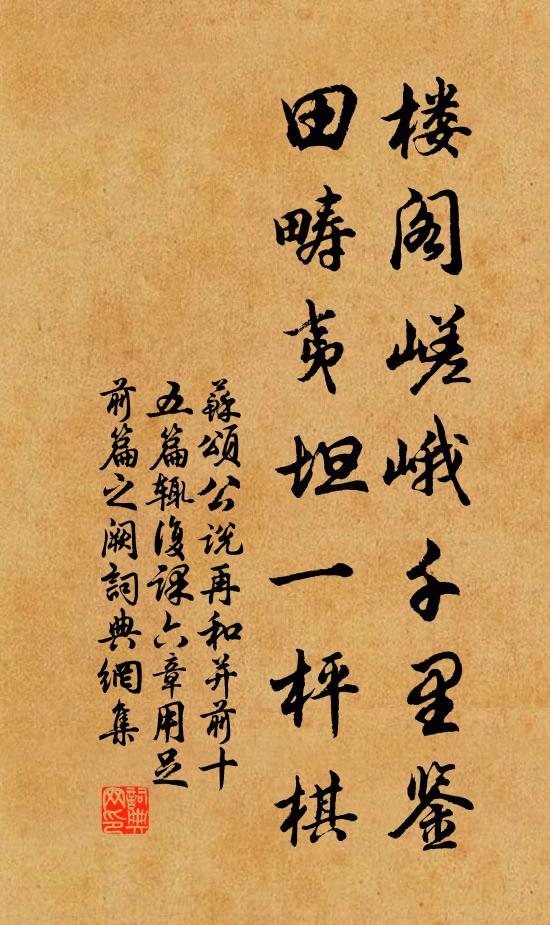 楼阁嵯峨千里鉴
田畴夷坦一枰棋
蘇頌公说再和并前十
五篇辄復课六章用足
前篇之阙詞典網集
詞典网印